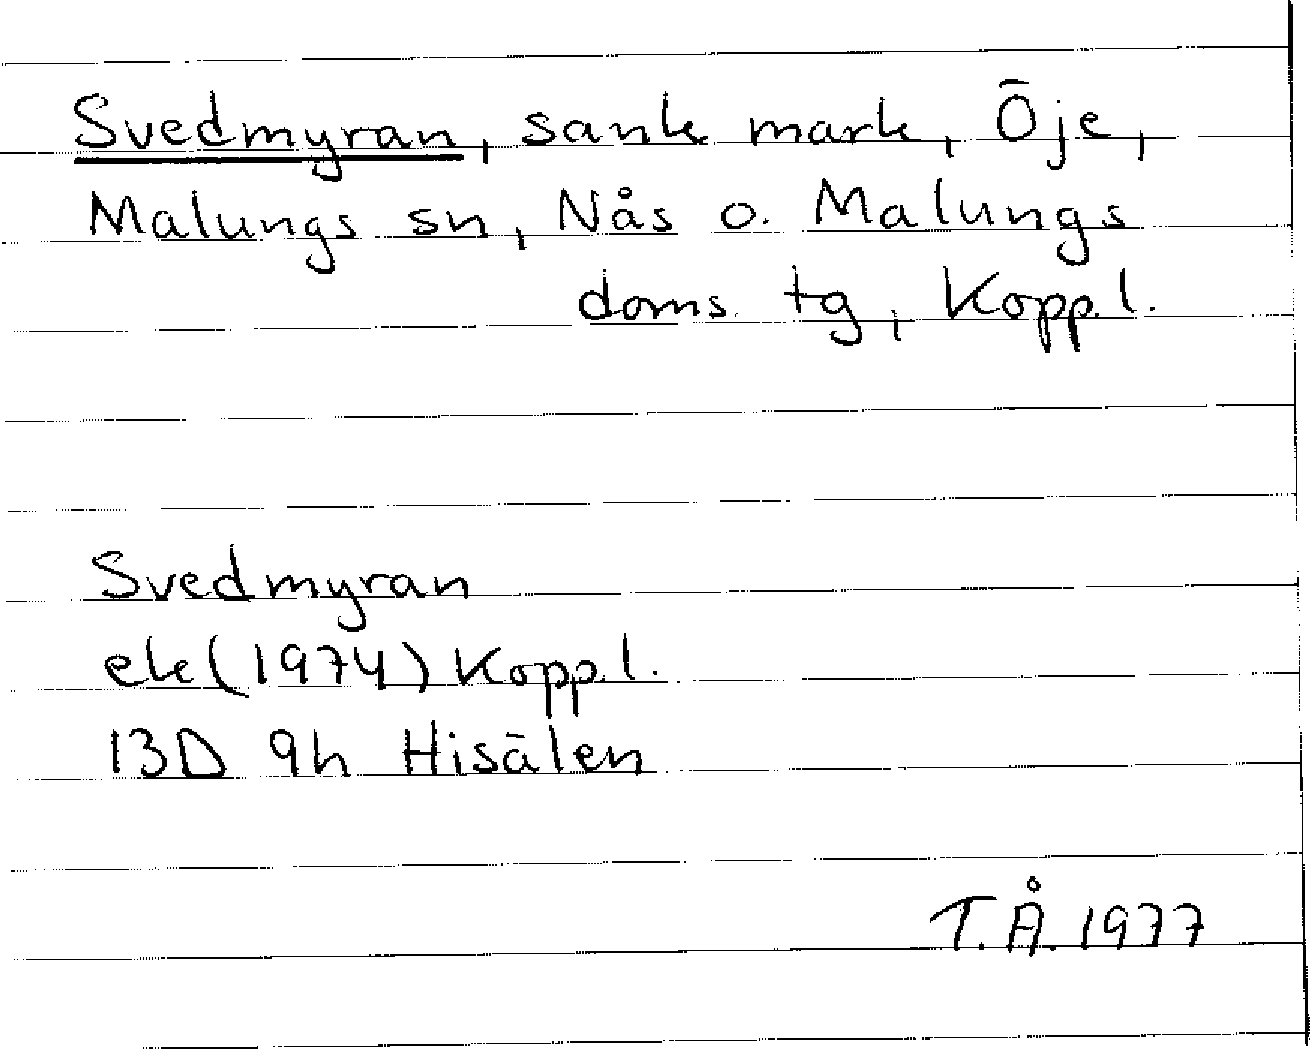 Svedmyran, sank mark, Öje,
Malungs sn, Nås o. Malungs
doms. tg, Kopp. l.
Svedmyran
ek (1974) Kopp. l.
13D 9h Hisälen
T. Å. 1977